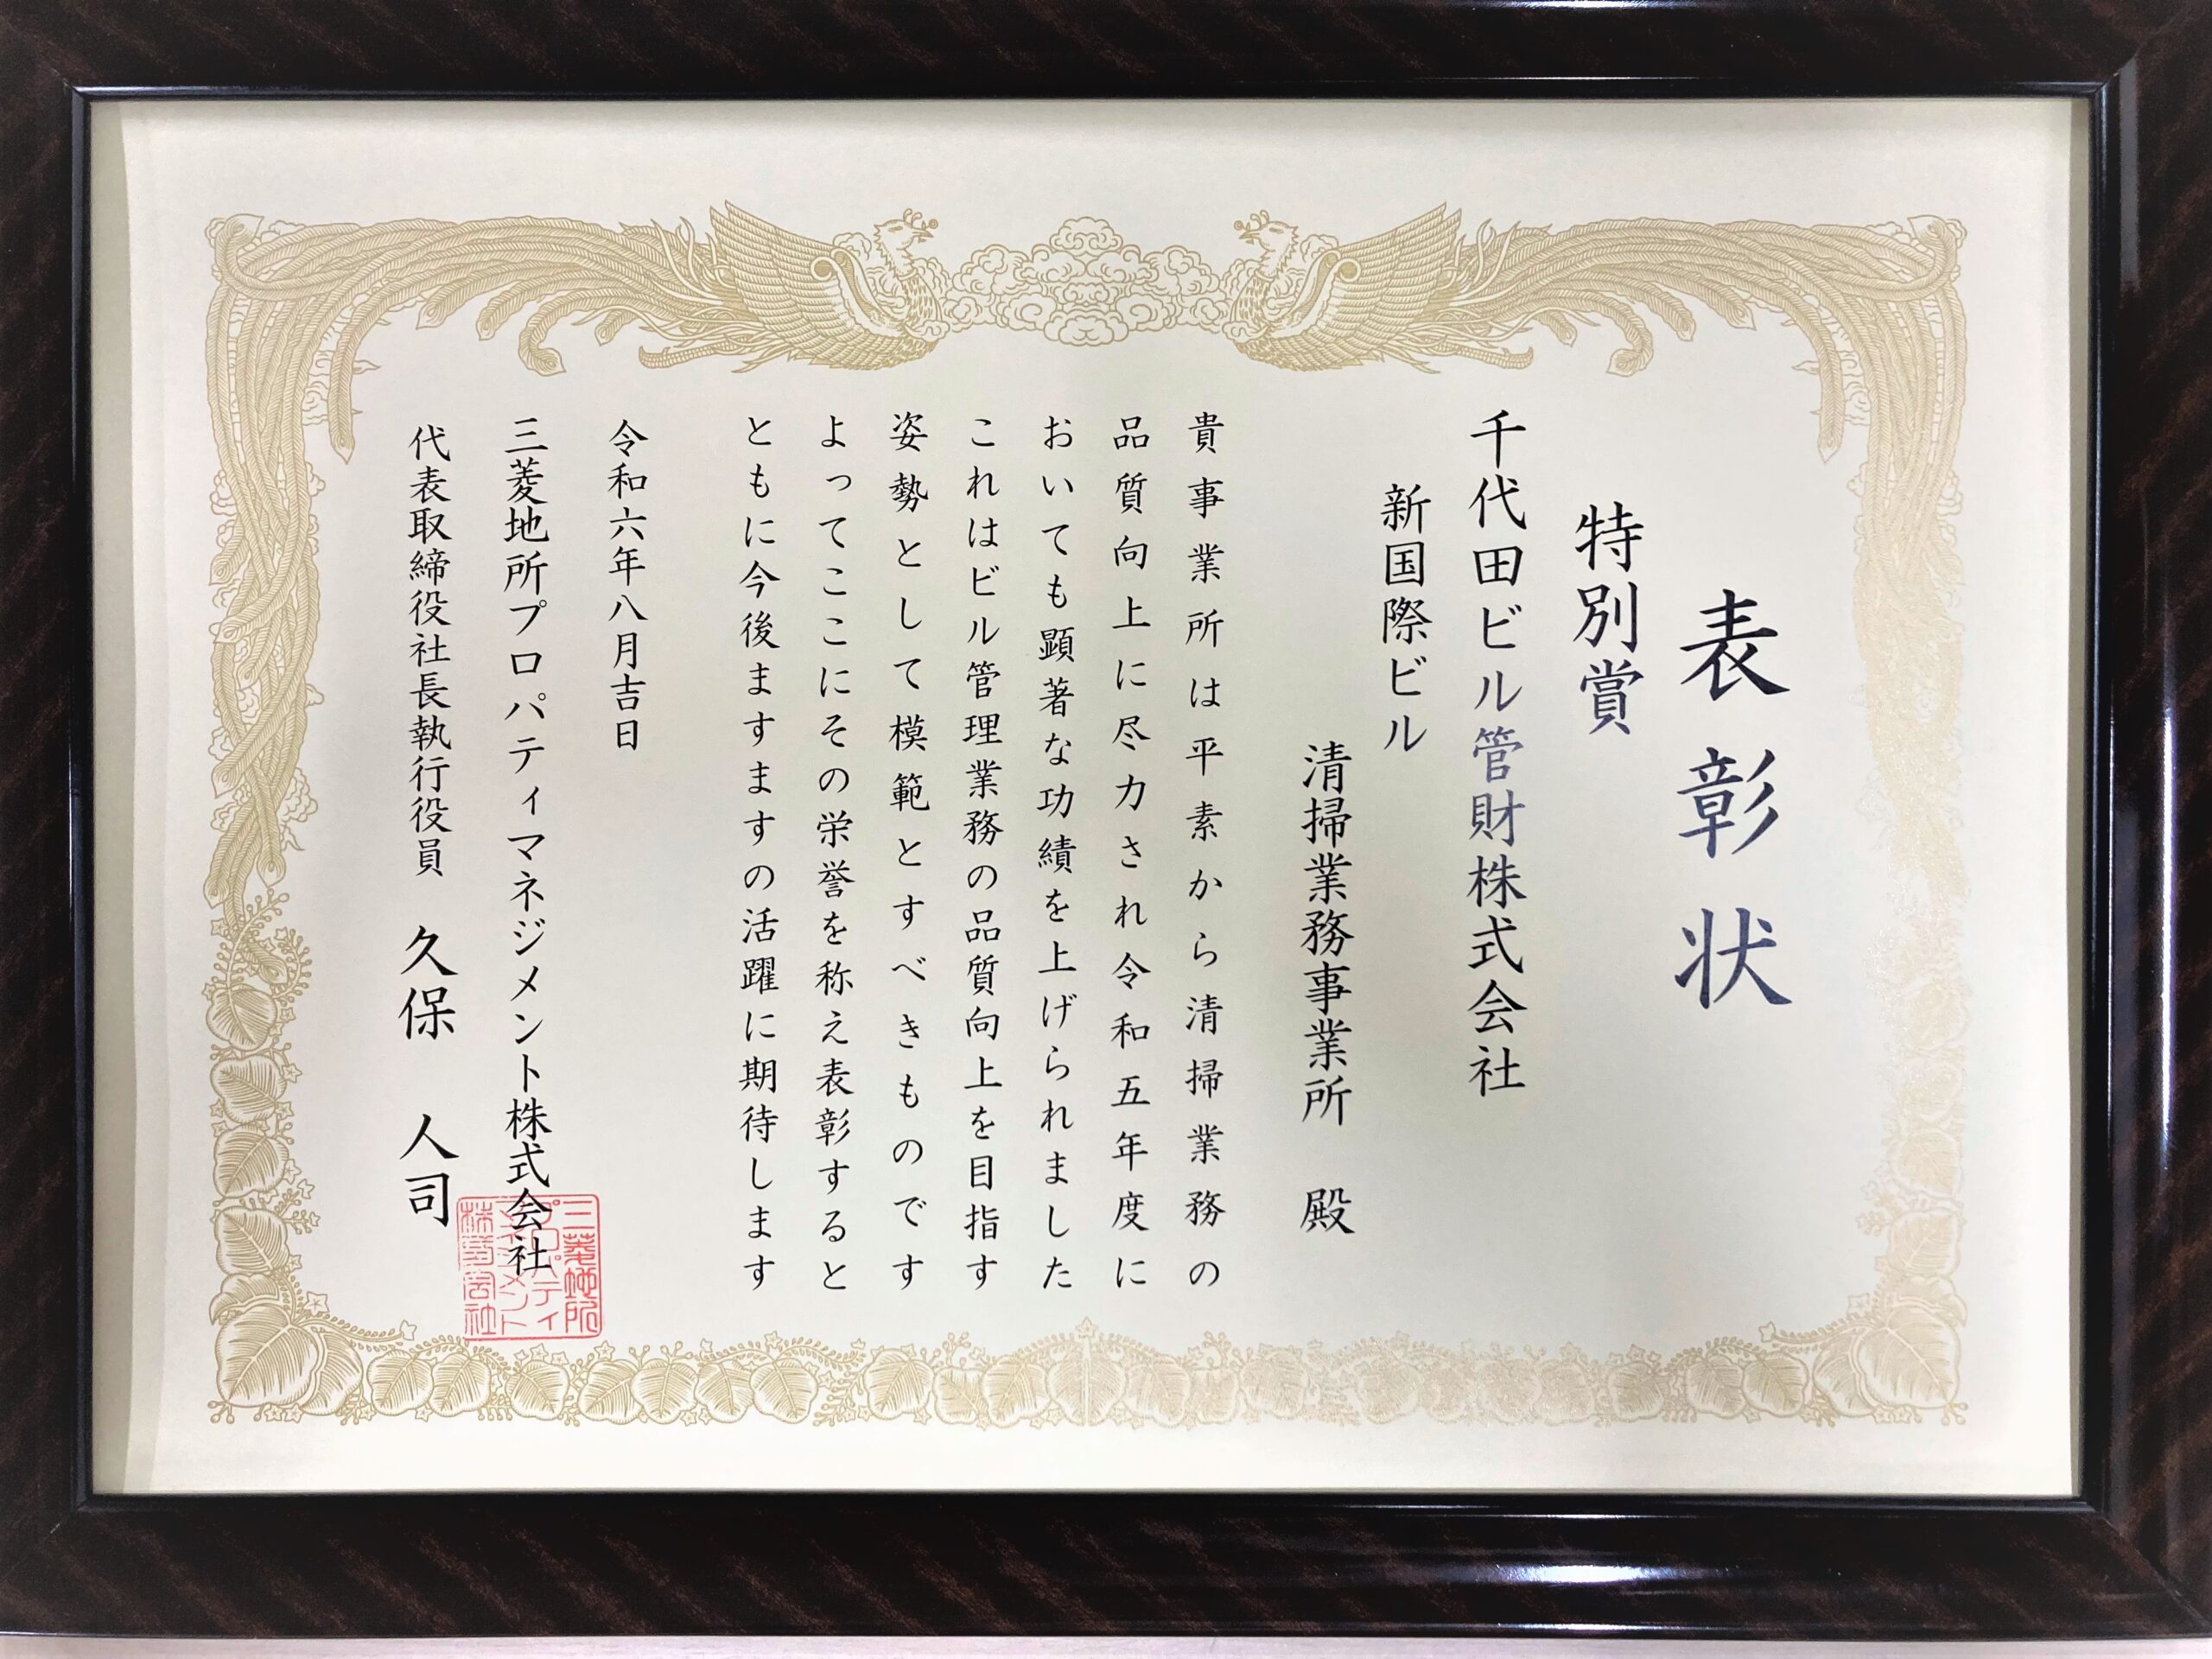 表彰状
特別賞
千代田ビル管財株式会社
新国際ビル
清掃業務事業所 殿
貴事業所は平素から清掃業務の
品質向上に尽力され令和五年度に
おいても顕著な功績を上げられました
これはビル管理業務の品質向上を目指す
姿勢として模範とすべきものです
よってここにその栄誉を称え表彰すると
ともに今後ますますの活躍に期待します
令和六年八月吉日
三菱地所プロパティマネジメント株式会社
代表取締役社長執行役員 久保 人司
三菱地所
プロパティ
マネジメント
株式会社